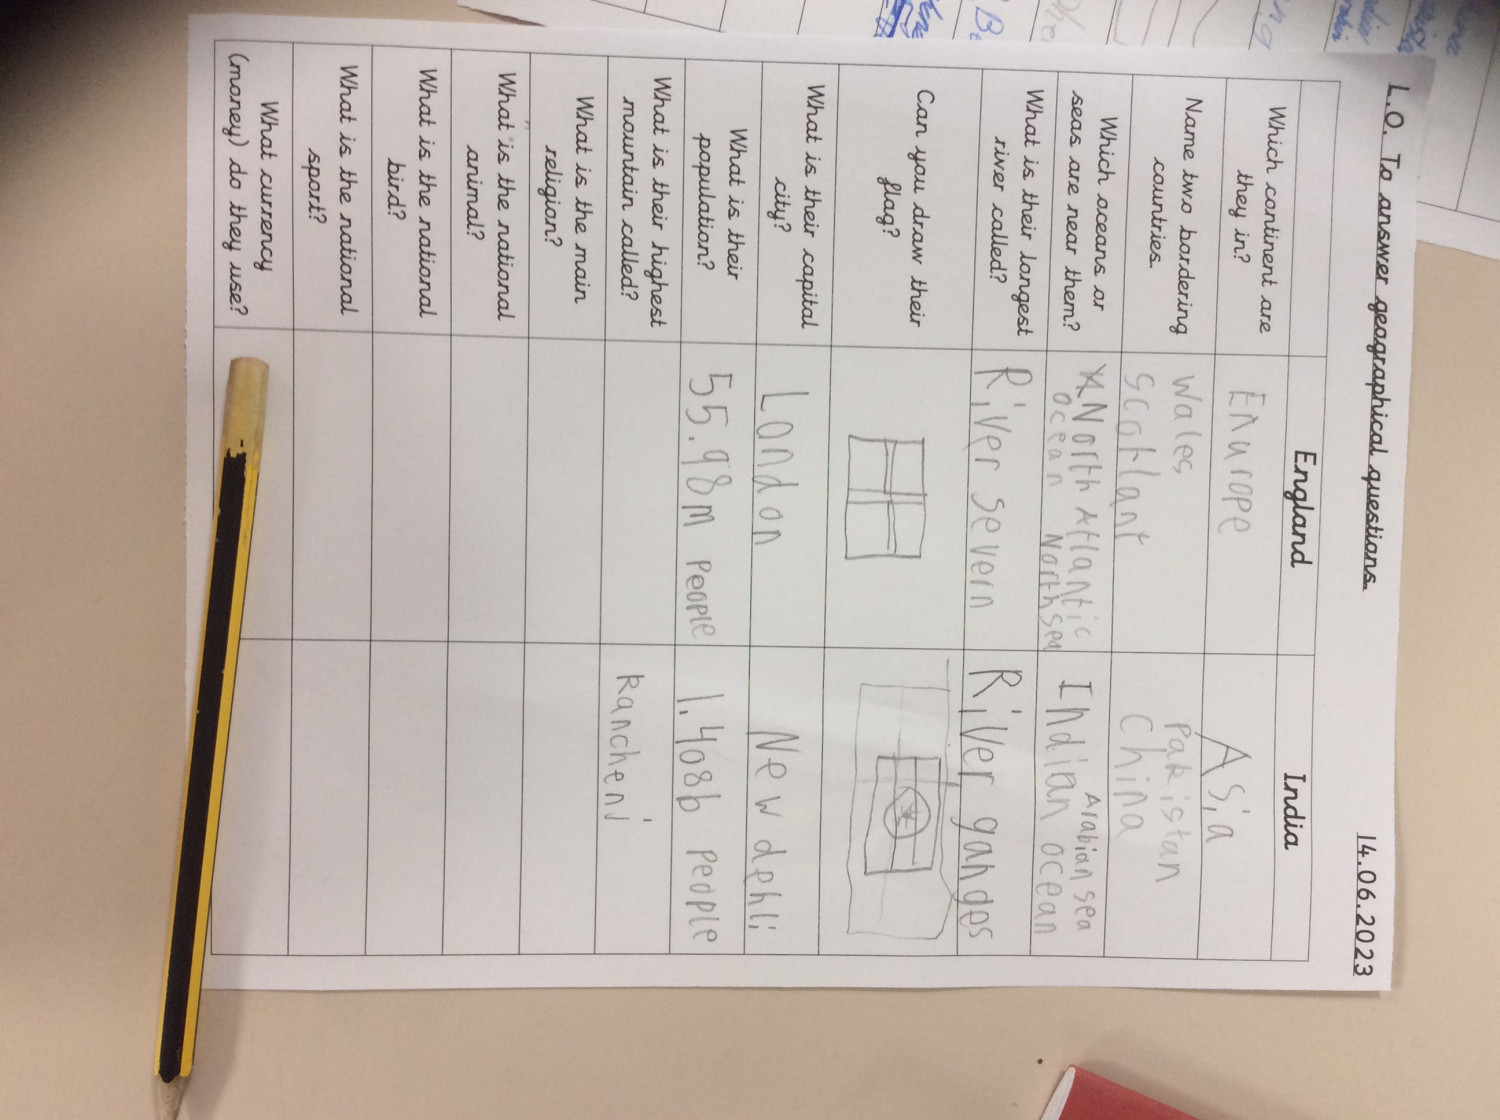 L.O. To answer geographical questions.
14.06.2023
England
India
Which continent are
they in?
Enurope
Asia
Name two bordering
countries.
Wales
Scotlant
Pakistan
China
Which oceans or
seas are near them?
North Atlantic
Ocean North sea
Arabian sea
Indian ocean
What is their longest
river called?
River severn
River ganges
Can you draw their
flag?
What is their capital
city?
London
New dehli
What is their
population?
55.98m people
1.408b people
What is their highest
mountain called?
Kancheni
What is the main
religion?
What is the national
animal?
What is the national
bird?
What is the national
sport?
What currency
(money) do they use?